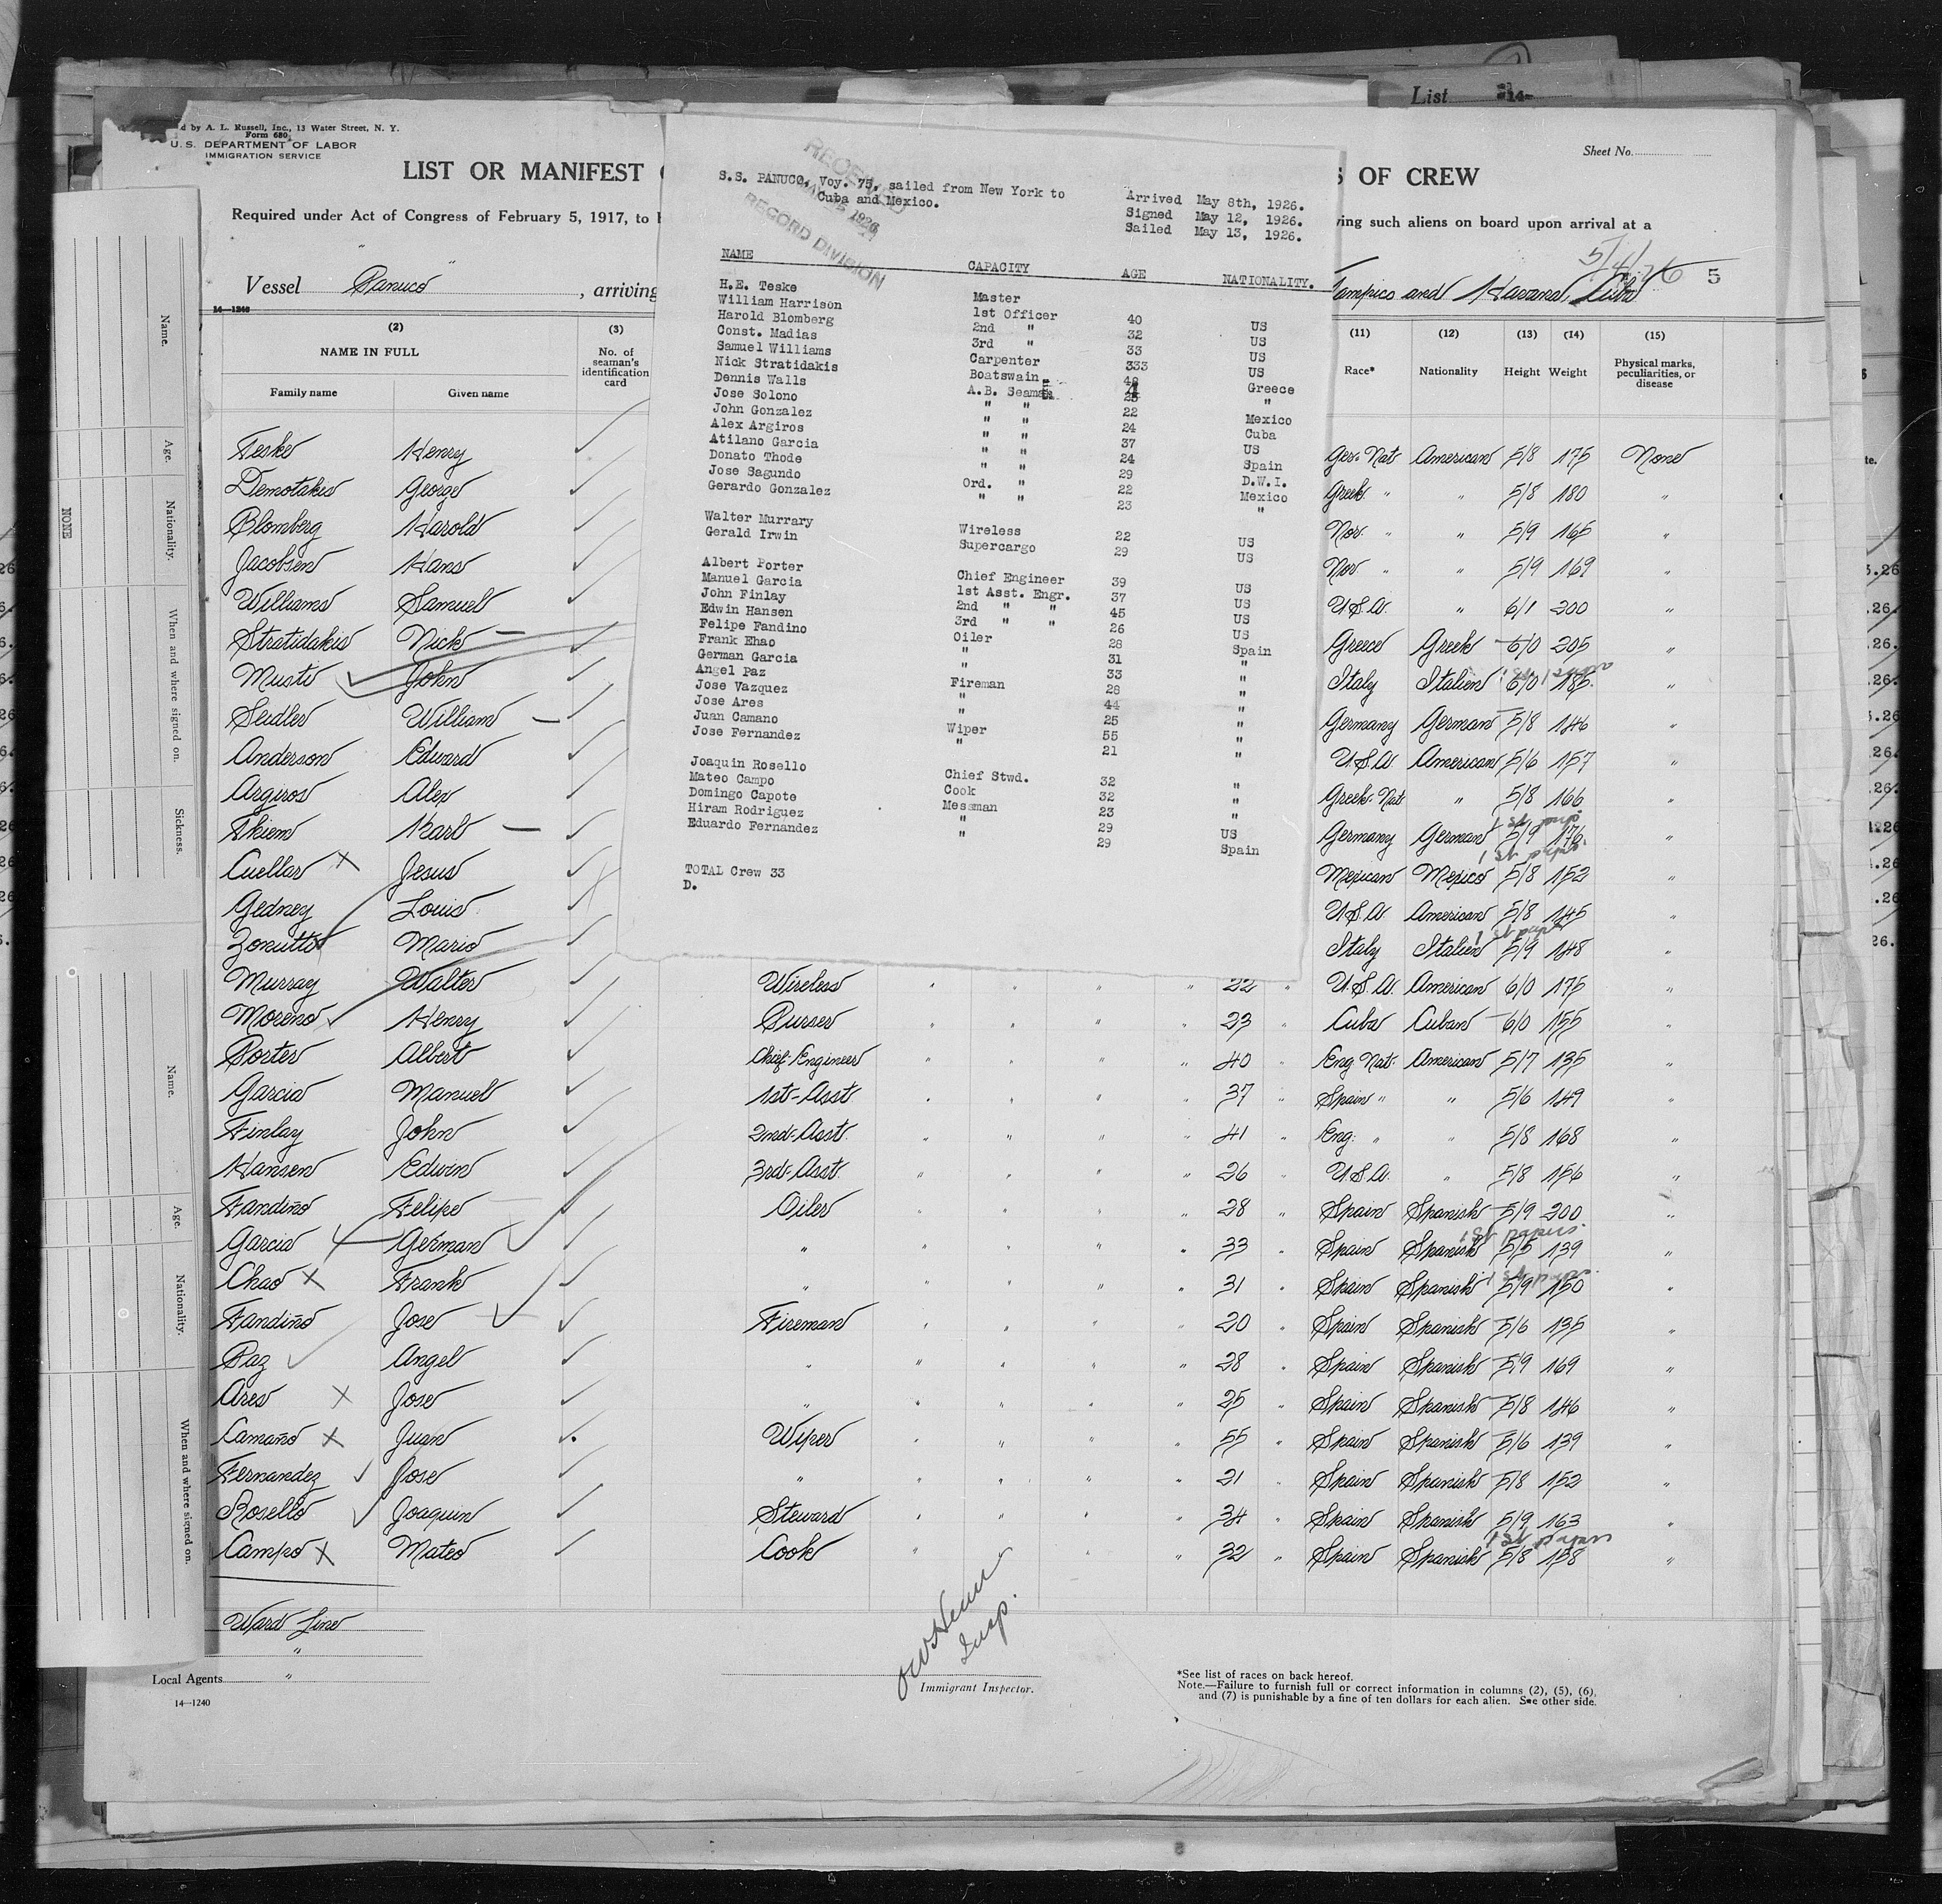 List 14-
d by A. L. Russell, Inc., 13 Water Street, N. Y.
Form 680
U. S. DEPARTMENT OF LABOR
IMMIGRATION SERVICE
Sheet No.
LIST OR MANIFEST
OF CREW
Required under Act of Congress of February 5, 1917, to
ving such aliens on board upon arrival at a
Vessel Panuco, arriving
Tampico and Havana, Cuba 5
14-1240
(2) (3) (11) (12) (13) (14) (15)
NAME IN FULL No. of seaman's identification card Race* Nationality Height Weight Physical marks, peculiarities, or disease
Family name Given name
RECEIVED
1926
RECORD DIVISION
S.S. PANUCO, Voy. 75, sailed from New York to
Cuba and Mexico.
Arrived May 8th, 1926.
Signed May 12, 1926.
Sailed May 13, 1926.
NAME CAPACITY AGE NATIONALITY.
H.E. Teske Master 40 US
William Harrison 1st Officer 32 US
Harold Blomberg 2nd " 33 US
Const. Madias 3rd " 333 US
Samuel Williams Carpenter US
Nick Stratidakis Boatswain Greece
Dennis Walls A.B. Seaman "
Jose Solono " " 22 Mexico
John Gonzalez " " 24 Cuba
Alex Argiros " " 37 US
Atilano Garcia " " 24 Spain
Donato Thode " " 29 D.W.I.
Jose Sagundo Ord. " 22 Mexico
Gerardo Gonzalez " " 23 "
Walter Murrary Wireless 22 US
Gerald Irwin Supercargo 29 US
Albert Porter Chief Engineer 39 US
Manuel Garcia 1st Asst. Engr. 37 US
John Finlay 2nd " " 45 US
Edwin Hansen 3rd " " 26 US
Felipe Fandino Oiler 28 Spain
Frank Ehao " 31 "
German Garcia " 33 "
Angel Paz Fireman 28 "
Jose Vazquez " 44 "
Jose Ares " 25 "
Juan Camano Wiper 55 "
Jose Fernandez " 21 "
Joaquin Rosello Chief Stwd. 32 "
Mateo Campo Cook 32 "
Domingo Capote Messman 23 "
Hiram Rodriguez " 29 US
Eduardo Fernandez " 29 Spain
TOTAL Crew 33
D.
Teske Henry Ger. Nat American 5/8 175 None
Demotakis George Greek " " 5/8 180 "
Blomberg Harold Nor. " " 5/9 165 "
Jacobsen Hans Nor " " 5/9 169 "
Williams Samuel U.S.A. " 6/1 200 "
Stratidakis Nick Greece Greek 6/0 205 "
Musti John Italy Italien 6/0 185 "
Seidler William Germany German 5/8 146 "
Anderson Edward U.S.A. American 5/6 157 "
Argiros Alex Greek. Nat " 5/8 166 "
Thiem Karl Germany German 5/9 176 "
Cuellar Jesus Mexican Mexico 5/8 152 "
Gedney Louis U.S.A. American 5/8 145 "
Zonutti Mario Italy Italien 5/9 148 "
Murray Walter Wireless " " " " 22 " U.S.A. American 6/0 175 "
Moreno Henry Purser " " " " 23 " Cuba Cuban 6/0 155 "
Porter Albert Chief-Engineer " " " " 40 " Eng. Nat. American 5/7 135 "
Garcia Manuel 1st-Asst " " " " 37 " Spain " " 5/6 149 "
Finlay John 2nd-Asst. " " " " 41 " Eng. " " 5/8 168 "
Hansen Edwin 3rd-Asst. " " " " 26 " U.S.A. " 5/8 156 "
Fandiño Felipe Oiler " " " " 28 " Spain Spanish 5/9 200 "
1st papers.
Garcia German " " " " " 33 " Spain Spanish 5/5 139 "
Chao Frank " " " " " 31 " Spain Spanish 5/9 150 "
Fandiño Jose Fireman " " " " 20 " Spain Spanish 5/6 135 "
Paz Angel " " " " " 28 " Spain Spanish 5/9 169 "
Ares Jose " " " " " 25 " Spain Spanish 5/8 146 "
Camaño Juan Wiper " " " " 55 " Spain Spanish 5/6 139 "
Fernandez Jose " " " " " 21 " Spain Spanish 5/8 152 "
Rosello Joaquin Steward " " " " 34 " Spain Spanish 5/9 163 "
1st papers
Campo Mateo Cook " " " " 32 " Spain Spanish 5/8 158 "
Ward Line
"
Local Agents "
14-1240
Insp.
Immigrant Inspector.
*See list of races on back hereof.
Note.—Failure to furnish full or correct information in columns (2), (5), (6),
and (7) is punishable by a fine of ten dollars for each alien. See other side.
Name.
Age.
Nationality.
NONE
When and where signed on.
Sickness.
Name.
Age.
Nationality.
When and where signed on.